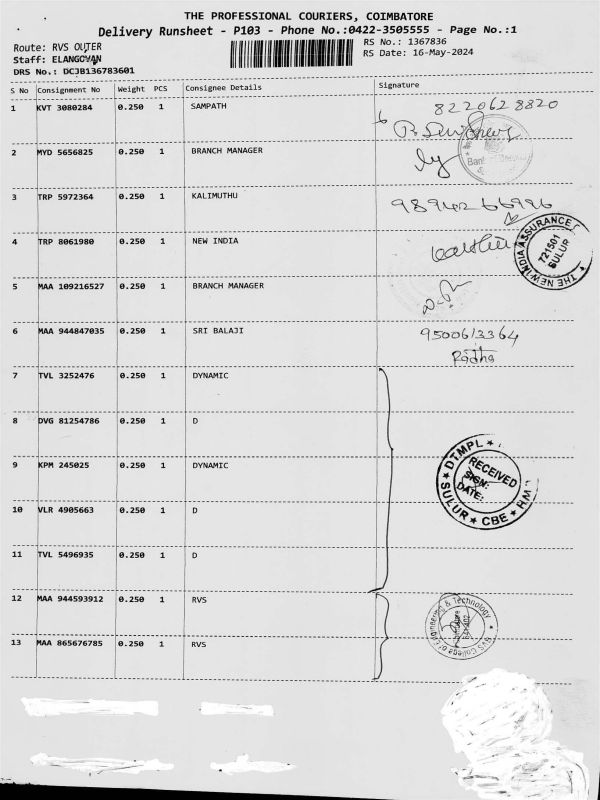 THE PROFESSIONAL COURIERS, COIMBATORE
Delivery Runsheet - P103 - Phone No.:0422-3505555 - Page No.:1
Route: RVS OUTER
RS No.: 1367836
Staff: ELANGOVAN
RS Date: 16-May-2024
DRS No.: DCJB136783601
S No Consignment No Weight PCS Consignee Details Signature
1 KVT 3080284 0.250 1 SAMPATH 8220628820
2 MYD 5656825 0.250 1 BRANCH MANAGER
3 TRP 5972364 0.250 1 KALIMUTHU 9894266996
4 TRP 8061980 0.250 1 NEW INDIA
THE NEW INDIA ASSURANCE
721501
SULUR
5 MAA 109216527 0.250 1 BRANCH MANAGER
6 MAA 944847035 0.250 1 SRI BALAJI 9500613364
Radha
7 TVL 3252476 0.250 1 DYNAMIC
8 DVG 81254786 0.250 1 D
9 KPM 245025 0.250 1 DYNAMIC
DTMPL
RECEIVED
SIGN:
DATE:
SULUR ★ CBE ★
10 VLR 4905663 0.250 1 D
11 TVL 5496935 0.250 1 D
12 MAA 944593912 0.250 1 RVS
RVS College of Engineering & Technology
13 MAA 865676785 0.250 1 RVS